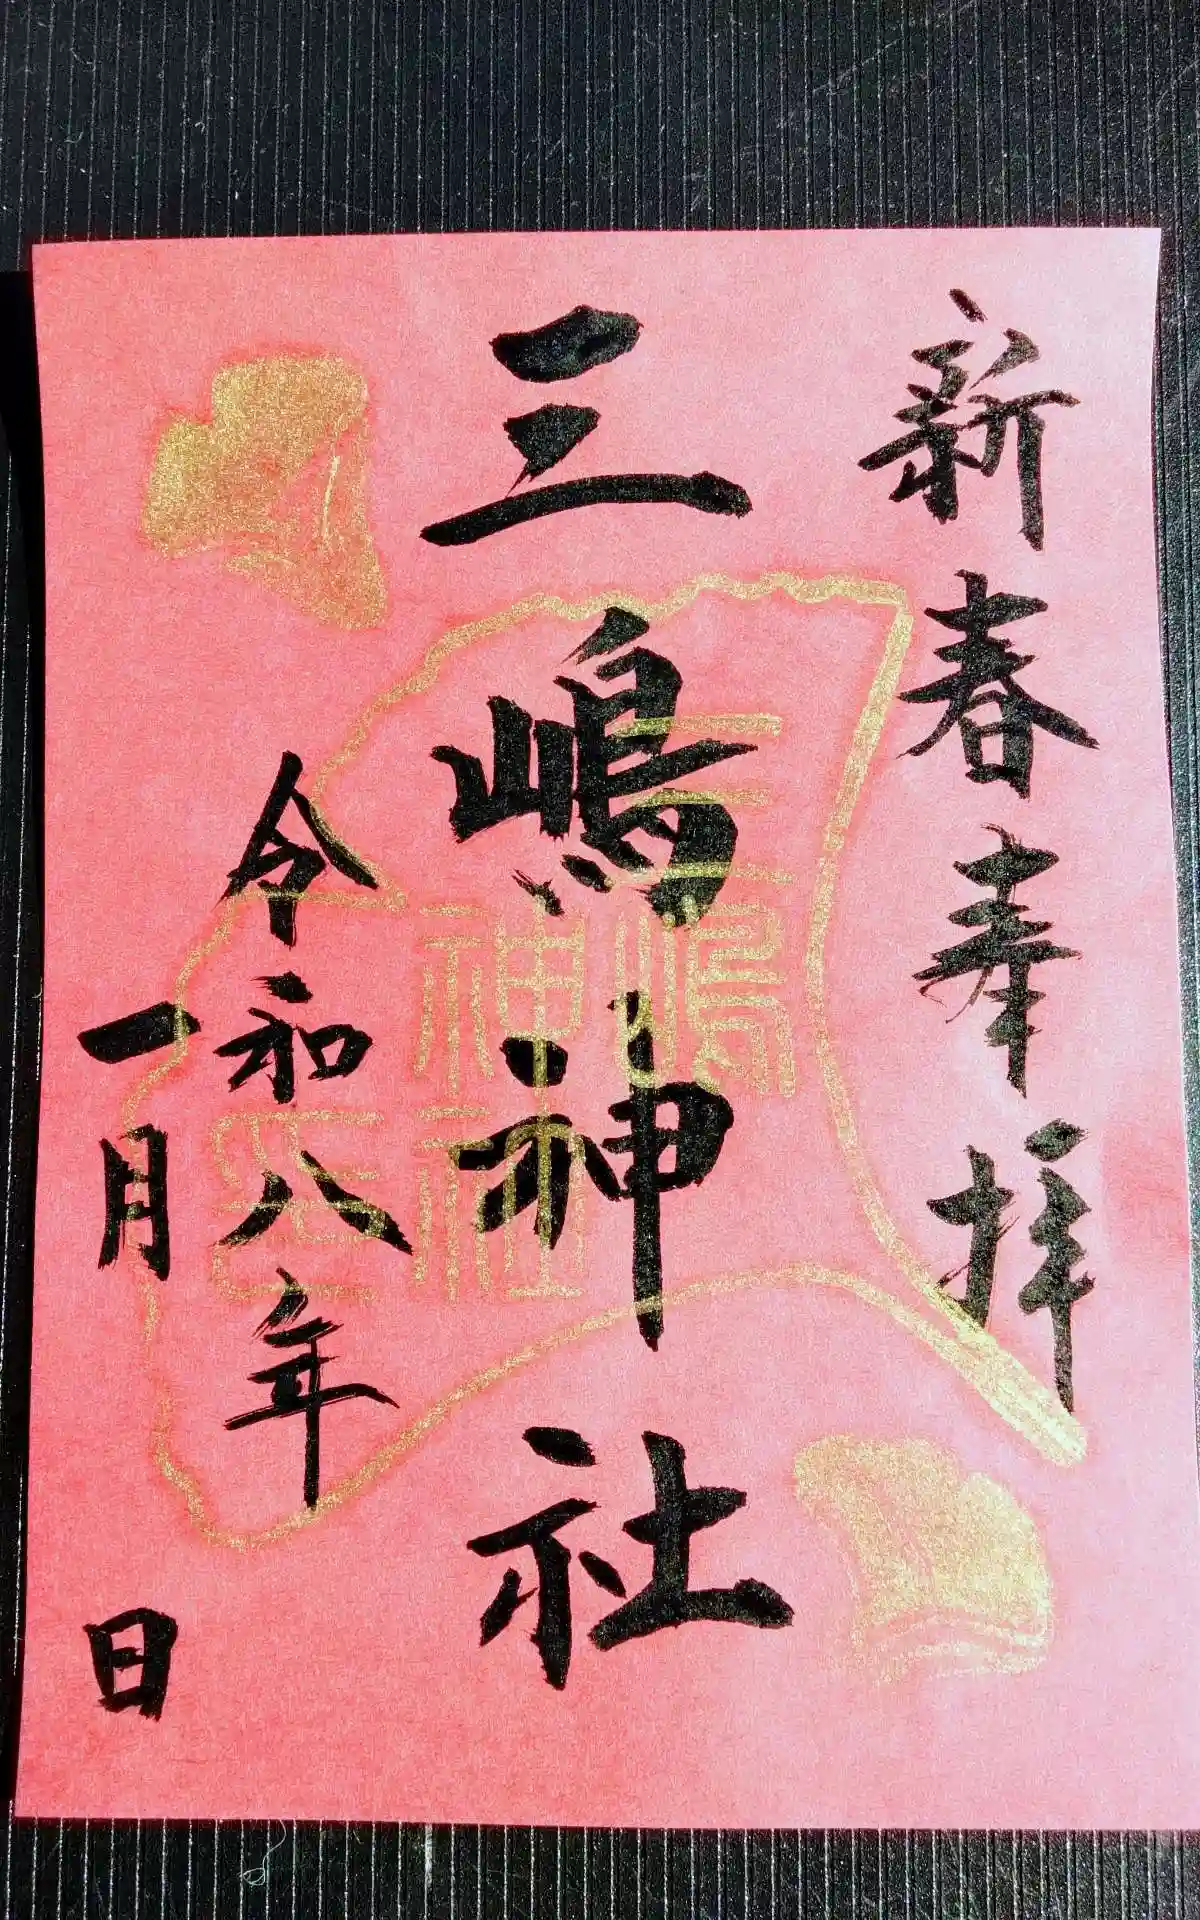 新春奉拝
三嶋神社
令和八年
一月 日
三嶋
神社